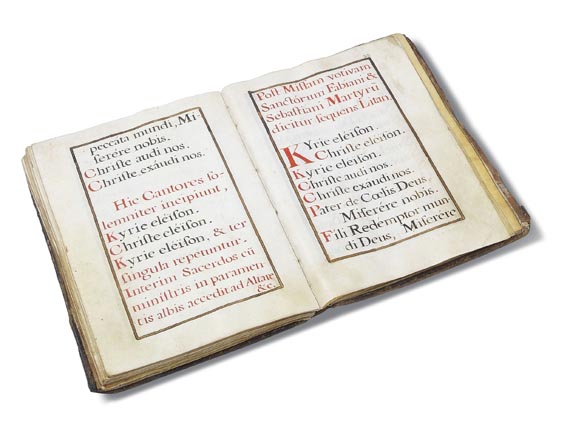 peccata mundi, Mi-
serére nobis.
Christe audi nos.
Christe exáudi nos.
Hic Cantores so-
lemniter incipiunt,
Kyrie eléison.
Christe eléison.
Kyrie eléison, & ter
singula repetuntur.
Interim Sacerdos cū
ministris in paramen
tis albis accedit ad Altare
&c.
Post Missam votivam
Sanctórum Fabiani &
Sebastiani Martyrū
dicitur sequens Latan.
Kyrie eléison.
Christe eléison.
Kyrie eléison.
Christe audi nos.
Christe exaudi nos.
Pater de Cœlis Deus,
Miserére nobis.
Fili Redemptor mun
di Deus, Miserére